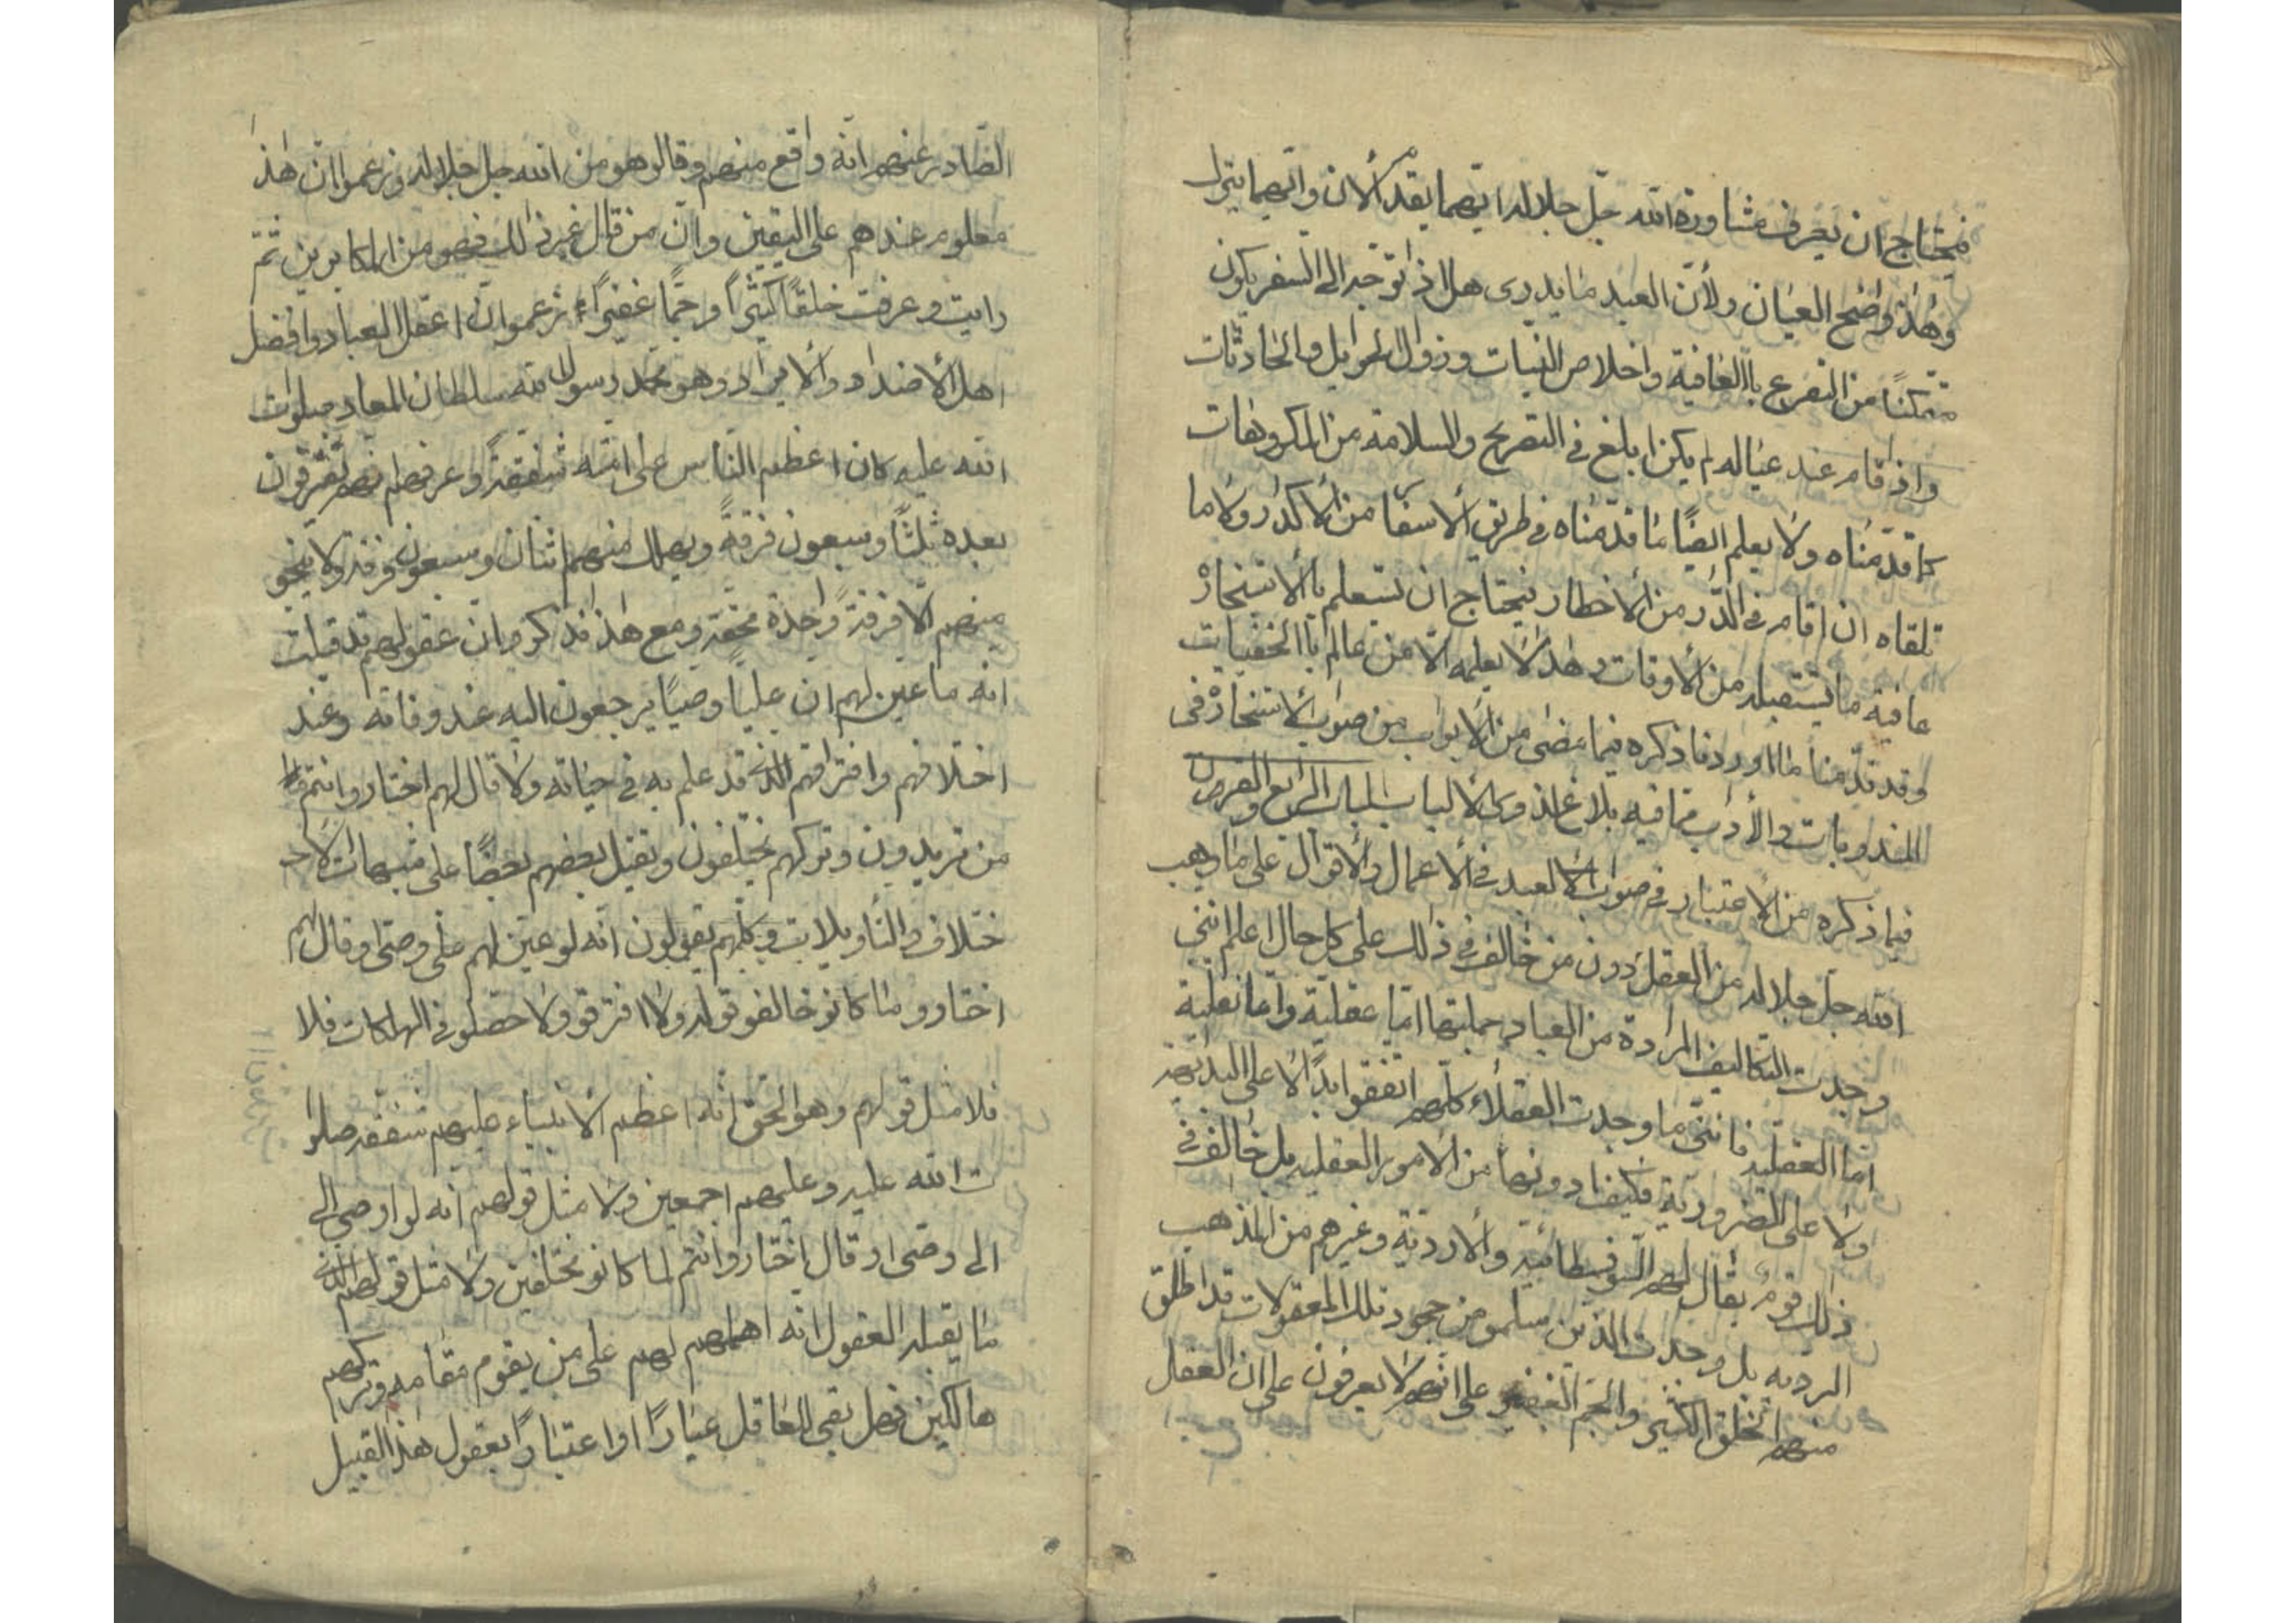 فيحتاج ان يعرف مشاورة الله جل جلاله ايهما يقدم الان وايهما يترك
وهذا واضح العيان ولأن العبد ما يدرى هل اذا توجه الى السفر يكون
متمكنًا من التفرع باالعافية واخلاص النيات وزوال الحوايل والحادثات
واذا قام عند عياله لم يكن ابلغ فى التصريح والسلامة من المكروهات
كما قدّمناه ولا يعلم ايضًا ما قدّمناه فى طريق الاسفار من الاكدار ولا ما
تلقاه ان اقام فى الدّار من الأخطار فيحتاج ان تستعلم بالاستخارة
عافية ما يستقبله من الأوقات وهذا لا يعلمه الّا من عالم باالخفيات
وقد قدّمنا ما اوردنا ذكره فيما مضى من الابواب من صواب الاستخارة فى
المندوبات والأداب مما فيه بلاغ لذوى الالباب الباب الرابع والعشرون
فيما ذكره من الاعتبار فى صواب العبد فى الاعمال والاقوال على ما وهب
الله جل جلاله من العقل دون من خالف فى ذلك على كل حال اعلم اننى
وجدت التكاليف المرادة من العباد جملتها امّا عقلية وامّا نقلية
امّا العقلية فاننى ما وجدت العقلاء كلّهم اتفقوا ابدًا لا على البديهية
ولا على الضرورية فكيف ما دونهما من الامور العقلية بل خالف فى
ذلك قوم يقال لهم السّوفسطائية والأردنية وغيرهم من المذهب
الرديه بل وجدت الذين سلمو من جحود تلك المعقولات قد اطلق
منهم الخلق الكثير والجم الغفير على انهم لا يعرفون على ان العقل
الصّادر عنهم انّه واقع منهم وقالو هو من الله جل جلاله وزعموا انّ هذا
معلوم عندهم على اليقين وانّ من قال غير ذلك فهو من المكابرين ثمّ
رايت وعرفت خلقًا كثيرًا وجمًّا غفيرًا زعموا ان اعقل العباد وافضل
اهل الأضداد والايراد وهو محمد رسول الله سلطان المعاد صلوات
الله عليه كان اعظم النّاس على امّته شفقةً وعرفهم انّهم تفترقون
بعده ثلثًا وسبعون فرقةً ويهلك منهم اثنان وسبعون فرقة ولا ينجو
منهم الّا فرقةً واحدة محقّة ومع هذا فذكرو ان عقولهم قد قبلت
انه ما عين لهم ان عليًا وصيًا يرجعون اليه عند وفاته وعند
اختلافهم وافتراقهم الذى قد علم به فى حياته ولا قال لهم اختاروا انتم
من تريدون وتركهم يختلفون ويقتل بعضهم بعضًا على شبهات الا
ختلاف والتاويلات وكلّهم يقولون انّه لو عين لهم على وصى او قال لهم
اختارو ما كانو خالفو قوله ولا افترقو ولا حصلو فى الهلاكات فلا
فلا مثل قولهم وهو الحق انّه اعظم الانبياء عليهم شفقة صلوا
ت الله عليه وعليهم اجمعين ولا مثل قولهم انه لو اوصى الى
الى وصى او قال اختاروا انتم لما كانو مختلفين ولا مثل قولهم الذى
ما يقبله العقول انّه اهملهم لهم على من يقوم مقامه وتركهم
هالكين فهل بقى للعاقل عيارًا او اعتبارًا بعقول هذا القبيل